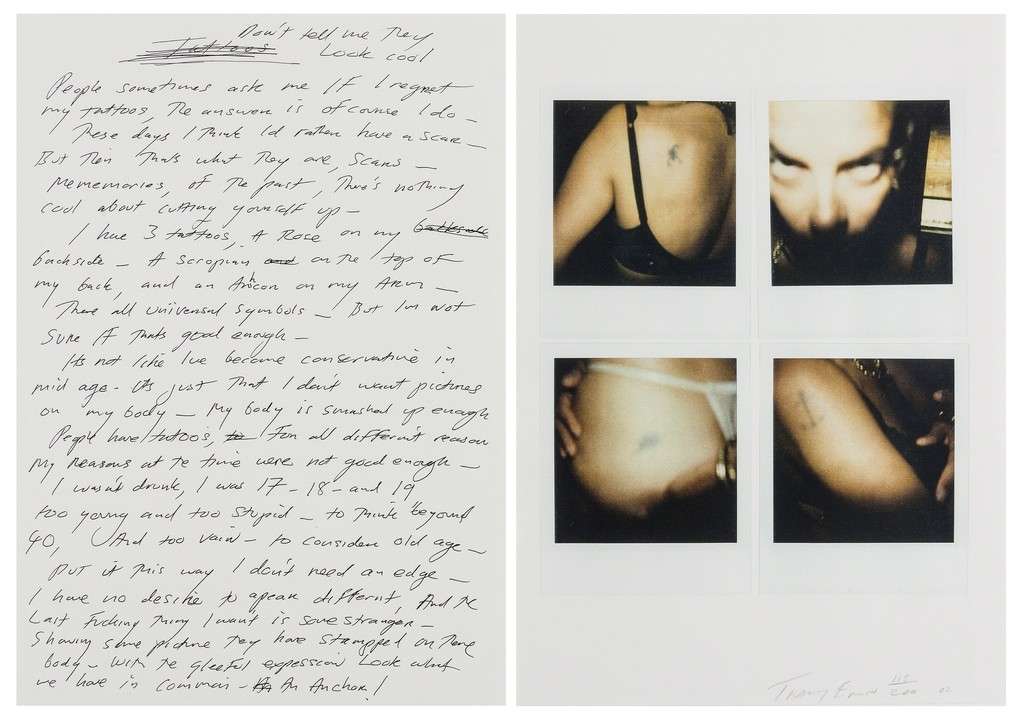 Don't tell me They
Tattoos Look cool
People sometimes ask me IF I regret
my tattoos, The answer is of course I do –
These days I Think I'd rather have a scar –
But Then Thats what They are, Scars –
Mememories, of The past, There's nothing
cool about cutting yourself up –
I have 3 tattoos, A Rose on my
backside – A Scropian and on the top of
my back, and an Ancor on my Arm –
There all universal symbols – But Im not
Sure IF Thats good enough –
Its not like Ive become conservative in
mid age – Its just That I don't want pictures
on my body – My body is smashed up enough
People have tattoos, to For all differint reason
My reasons at the time were not good enough –
I wasn't drunk, I was 17 – 18 – and 19
too young and too stupid – to Think beyond
40, And too vain – to consider old age –
PUT it This way I don't need an edge –
I have no desire to apear differnt, And the
Last Fucking Thing I want is some stranger –
Showing some picture They have stampped on There
body – With the gleeful expession Look what
we have in common – An Anchor!
Tracey Emin 115/200 02